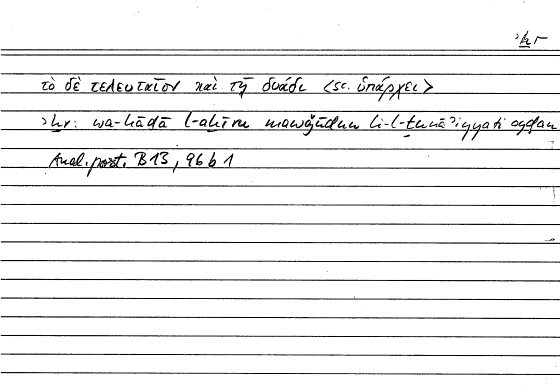 ʾḫr
τὸ δὲ τελευταῖον καὶ τῇ δυάδι <sc. ὑπάρχει>
ʾḫr: wa-hāḏā l-aḫīru mawǧūdun li-l-ṯunāʾiyyati ayḍan
Anal. post. B 13, 96 b 1